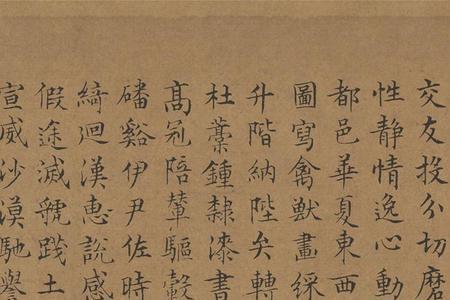 交友投分切磨
性静情逸心動
都邑華夏東西
圖寫禽獸畫綵
升階納陛弁轉
杜藁鍾隸漆書
髙冠陪輦驅轂
磻谿伊尹佐時
綺迴漢惠說感
假途滅虢踐土
宣威沙漠馳譽